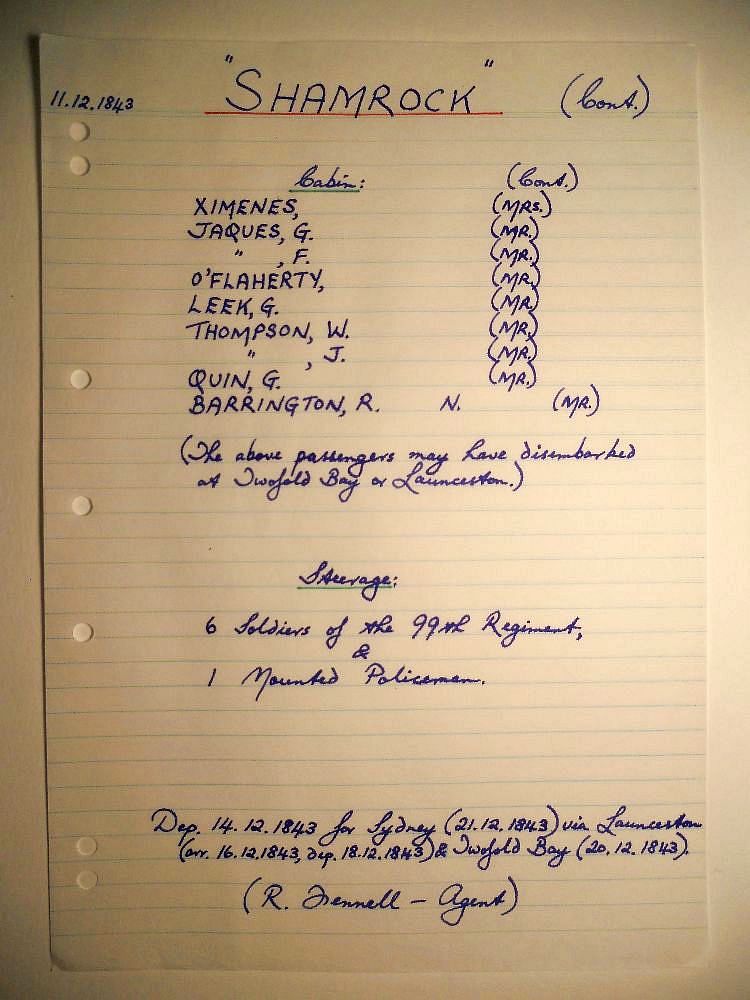 11.12.1843 "SHAMROCK" (Cont.)
Cabin: (Cont.)
XIMENES, (MRS.)
JAQUES, G. (MR.)
" , F. (MR.)
O'FLAHERTY, (MR.)
LEEK, G. (MR.)
THOMPSON, W. (MR.)
" , J. (MR.)
QUIN, G. (MR.)
BARRINGTON, R. N. (MR.)
(The above passengers may have disembarked
at Twofold Bay or Launceston.)
Steerage:
6 Soldiers of the 99th Regiment,
&
1 Mounted Policeman.
Dep. 14.12.1843 for Sydney (21.12.1843) via Launceston
(arr. 16.12.1843, dep. 18.12.1843) & Twofold Bay (20.12.1843).
(R. Fennell - Agent)